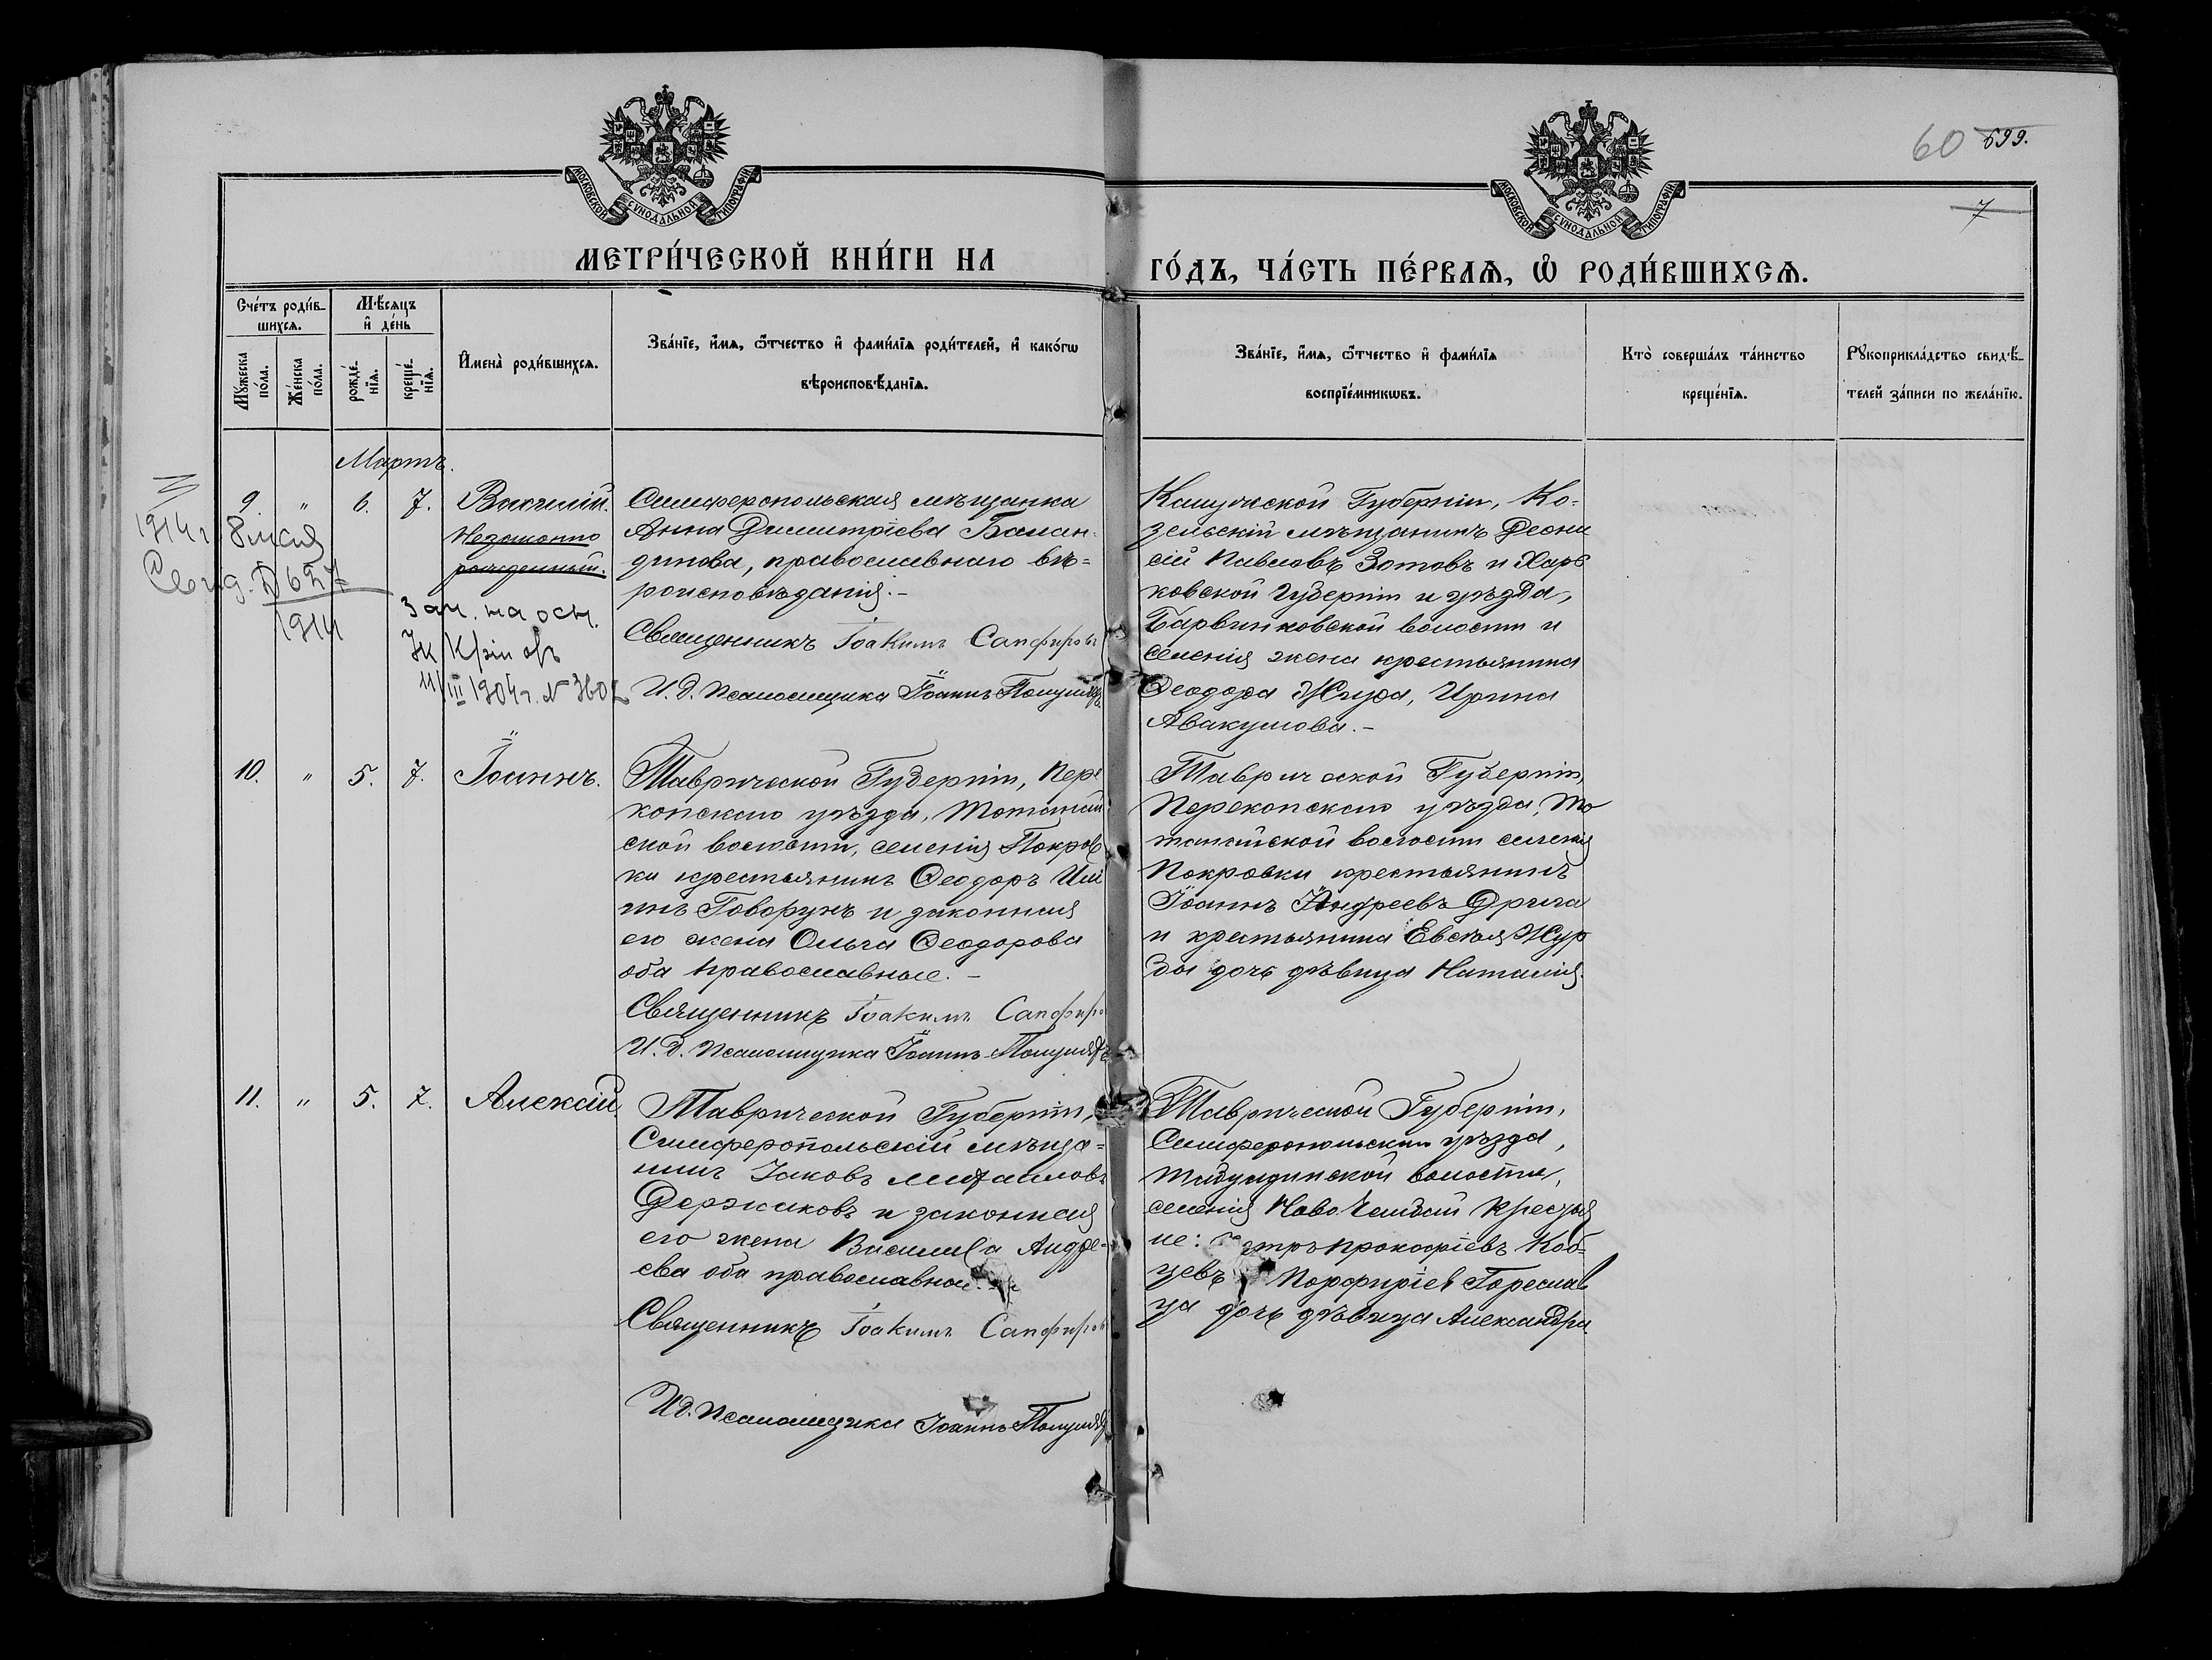 60 699.
7
МОСКОВСКОЙ СѴНОДАЛЬНОЙ ТИПОГРАФІИ
МОСКОВСКОЙ СѴНОДАЛЬНОЙ ТИПОГРАФІИ
МЕТРИ́ЧЕСКОЙ КНИ́ГИ НА
ГО́ДЪ, ЧА́СТЬ ПЕ́РВАѦ, Ѽ РОДИ́ВШИХСѦ.
Сче́тъ роди́в-
шихсѧ.
Мѣ́сѧцъ
и҆ де́нь
Мꙋ́жеска
по́ла.
Же́нска
по́ла.
рожде́-
нїѧ.
креще́-
нїѧ.
И҆мена̀ роди́вшихсѧ.
Зва́нїе, и҆́мѧ, ѻ҆́тчество и҆ фами́лїѧ роди́телей, и҆ како́гѡ
вѣроисповѣ́данїѧ.
Зва́нїе, и҆́мѧ, ѻ҆́тчество и҆ фами́лїѧ
воспрїе́мникѡвъ.
Кто̀ соверша́лъ та́инство
креще́нїѧ.
Рꙋкоприкла́дство свидѣ́-
телей за́писи по жела́нїю.
Мартъ.
9 " 6. 7. Василій.
Незаконно
рожденный.
1914 г 8 мая
Свид. № 627
1914
Зач. на осн.
11/III 1904 г. №
Симферопольская мѣщанка
Анна Димитріева Балан-
динова, православнаго вѣ-
роисповѣданія.-
Священникъ Іоакимъ Сапфировъ
И. д. Псаломщика Іоаннъ
Калужской Губерніи, Ко-
зельскій мѣщанинъ Деони
сій Павловъ Зотовъ и Харь
ковской Губерніи и уѣзда,
Барвинковской волости и
селенія жена крестьянина
Ѳеодора Жида, Ирина
Авакумова.-
10. " 5. 7. Іоаннъ.
Таврической Губерніи, Пере
копскаго уѣзда, Тотанай
ской волости, селенія Покров
ки крестьянинъ Ѳеодоръ Или
инъ Говорунъ и законная
его жена Ольга Ѳеодорова
оба православные.-
Священникъ Іоакимъ Сапфиро
И. д. Псаломщика Іоаннъ
Таврической Губерніи,
Перекопскаго уѣзда, То
танайской волости селенія
Покровки крестьянинъ
Іоаннъ Андреевъ Дрига
и крестьянина Евсѣя Жур
бы дочь дѣвица Наталія.
11. " 5. 7. Алексій.
Таврической Губерніи,
Симферопольскій мѣща-
нинъ Іаковъ Михаиловъ
Держаковъ и законная
его жена Василиса Андре-
ева оба православные.
Священникъ Іоакимъ Сапфиров
И.д. Псаломщика Іоаннъ
Таврической Губерніи,
Симферопольскаго уѣзда,
Табулдинской волости,
селенія Ново Чембай Крестья
не: Петръ Прокофіевъ Коб-
цевъ Порфиріев Гореслав
ца дочь дѣвица Александра.